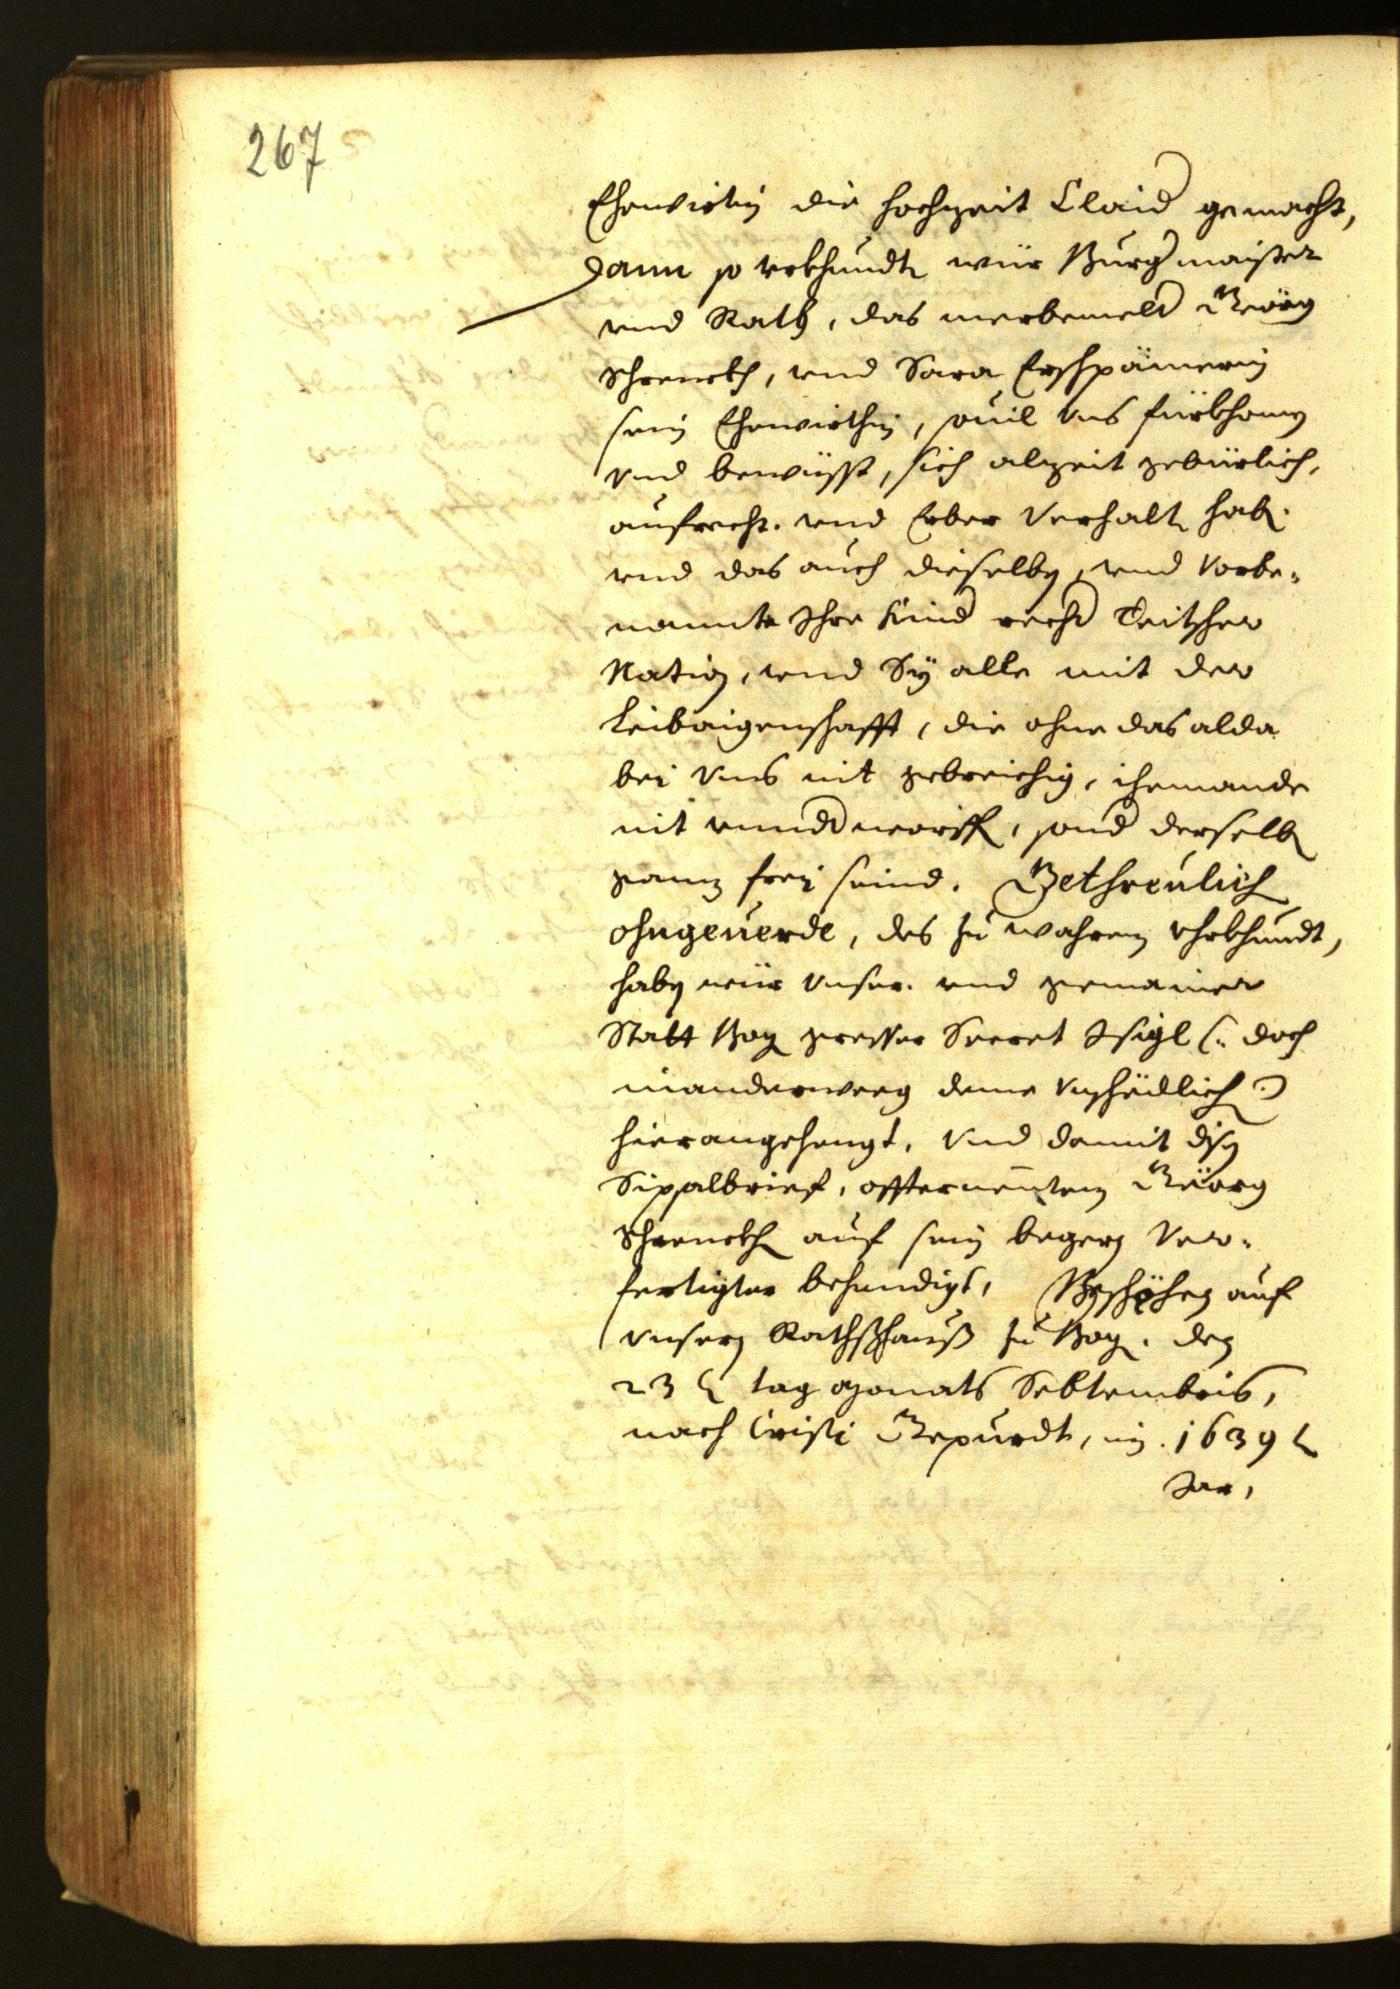 267
Ehewirtin die hochzeit Claid gemacht,
dann so vrkhundt wür Burgmaister
vnd Rath, das merbemelt Geörg
Schrenckh, vnd Sara
sein Ehewirthin, souil vns fürkhomen
vnd bewüsst, sich alzeit gebürlich,
aufrecht. vnd Erber Verhalten haben.
vnd das auch dieselben, vnd Vorbe-
nannte Ihre kind recht Teitscher
Nation, vnd Sÿ alle mit der
Leibaigenschafft, die ohne das alda
bei vns nit gebreichig, iemande
nit vnnderworffen, sonder derselben
ganz frei seind. Gethreulich
ohngeuerde, des zu wahrem vhrkhundt,
haben wür vnser. vnd gemainer
Statt Bozen gresser Secret Insigl (: doch
in anderweeg deme vnschedlich :)
hierangehengt. Vnd damit disen
Sigalbrief, offternenten Geörg
Schrenckh auf sein begern Ver-
fertigter behendigt, Beschehen auf
vnsern Rathßhauß zu Bozen. den
23 ten tag Monats Sebtembris,
nach Cristi Gepurdt, im 1639 ten
Jar,